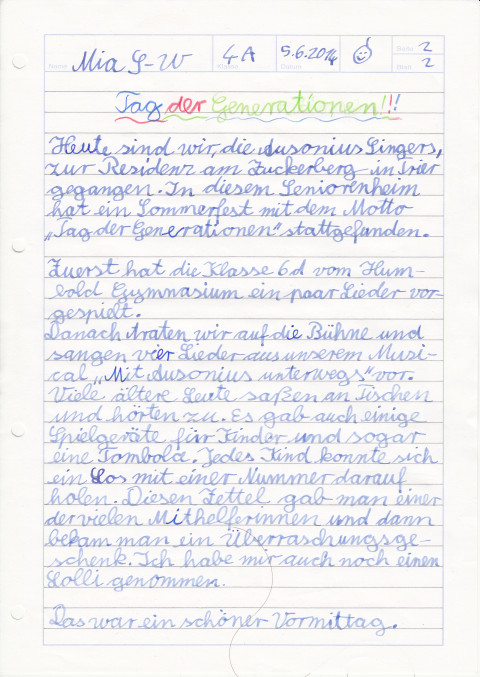 Name Mia S-W Klasse 4A Datum 5.6.2014 Seite 2
Blatt 2
Tag der Generationen!!!
Heute sind wir, die Ausonius Singers,
zur Residenz am Zuckerberg in Trier
gegangen. In diesem Seniorenheim
hat ein Sommerfest mit dem Motto
„Tag der Generationen" stattgefunden.
Zuerst hat die Klasse 6d vom Hum-
bold Gymnasium ein paar Lieder vor-
gespielt.
Danach traten wir auf die Bühne und
sangen vier Lieder aus unserem Musi-
cal „Mit Ausonius unterwegs" vor.
Viele ältere Leute saßen an Tischen
und hörten zu. Es gab auch einige
Spielgeräte für Kinder und sogar
eine Tombola. Jedes Kind konnte sich
ein Los mit einer Nummer darauf
holen. Diesen Zettel gab man einer
der vielen Mithelferinnen und dann
bekam man ein Überraschungsge-
schenk. Ich habe mir auch noch einen
Lolli genommen.
Das war ein schöner Vormittag.